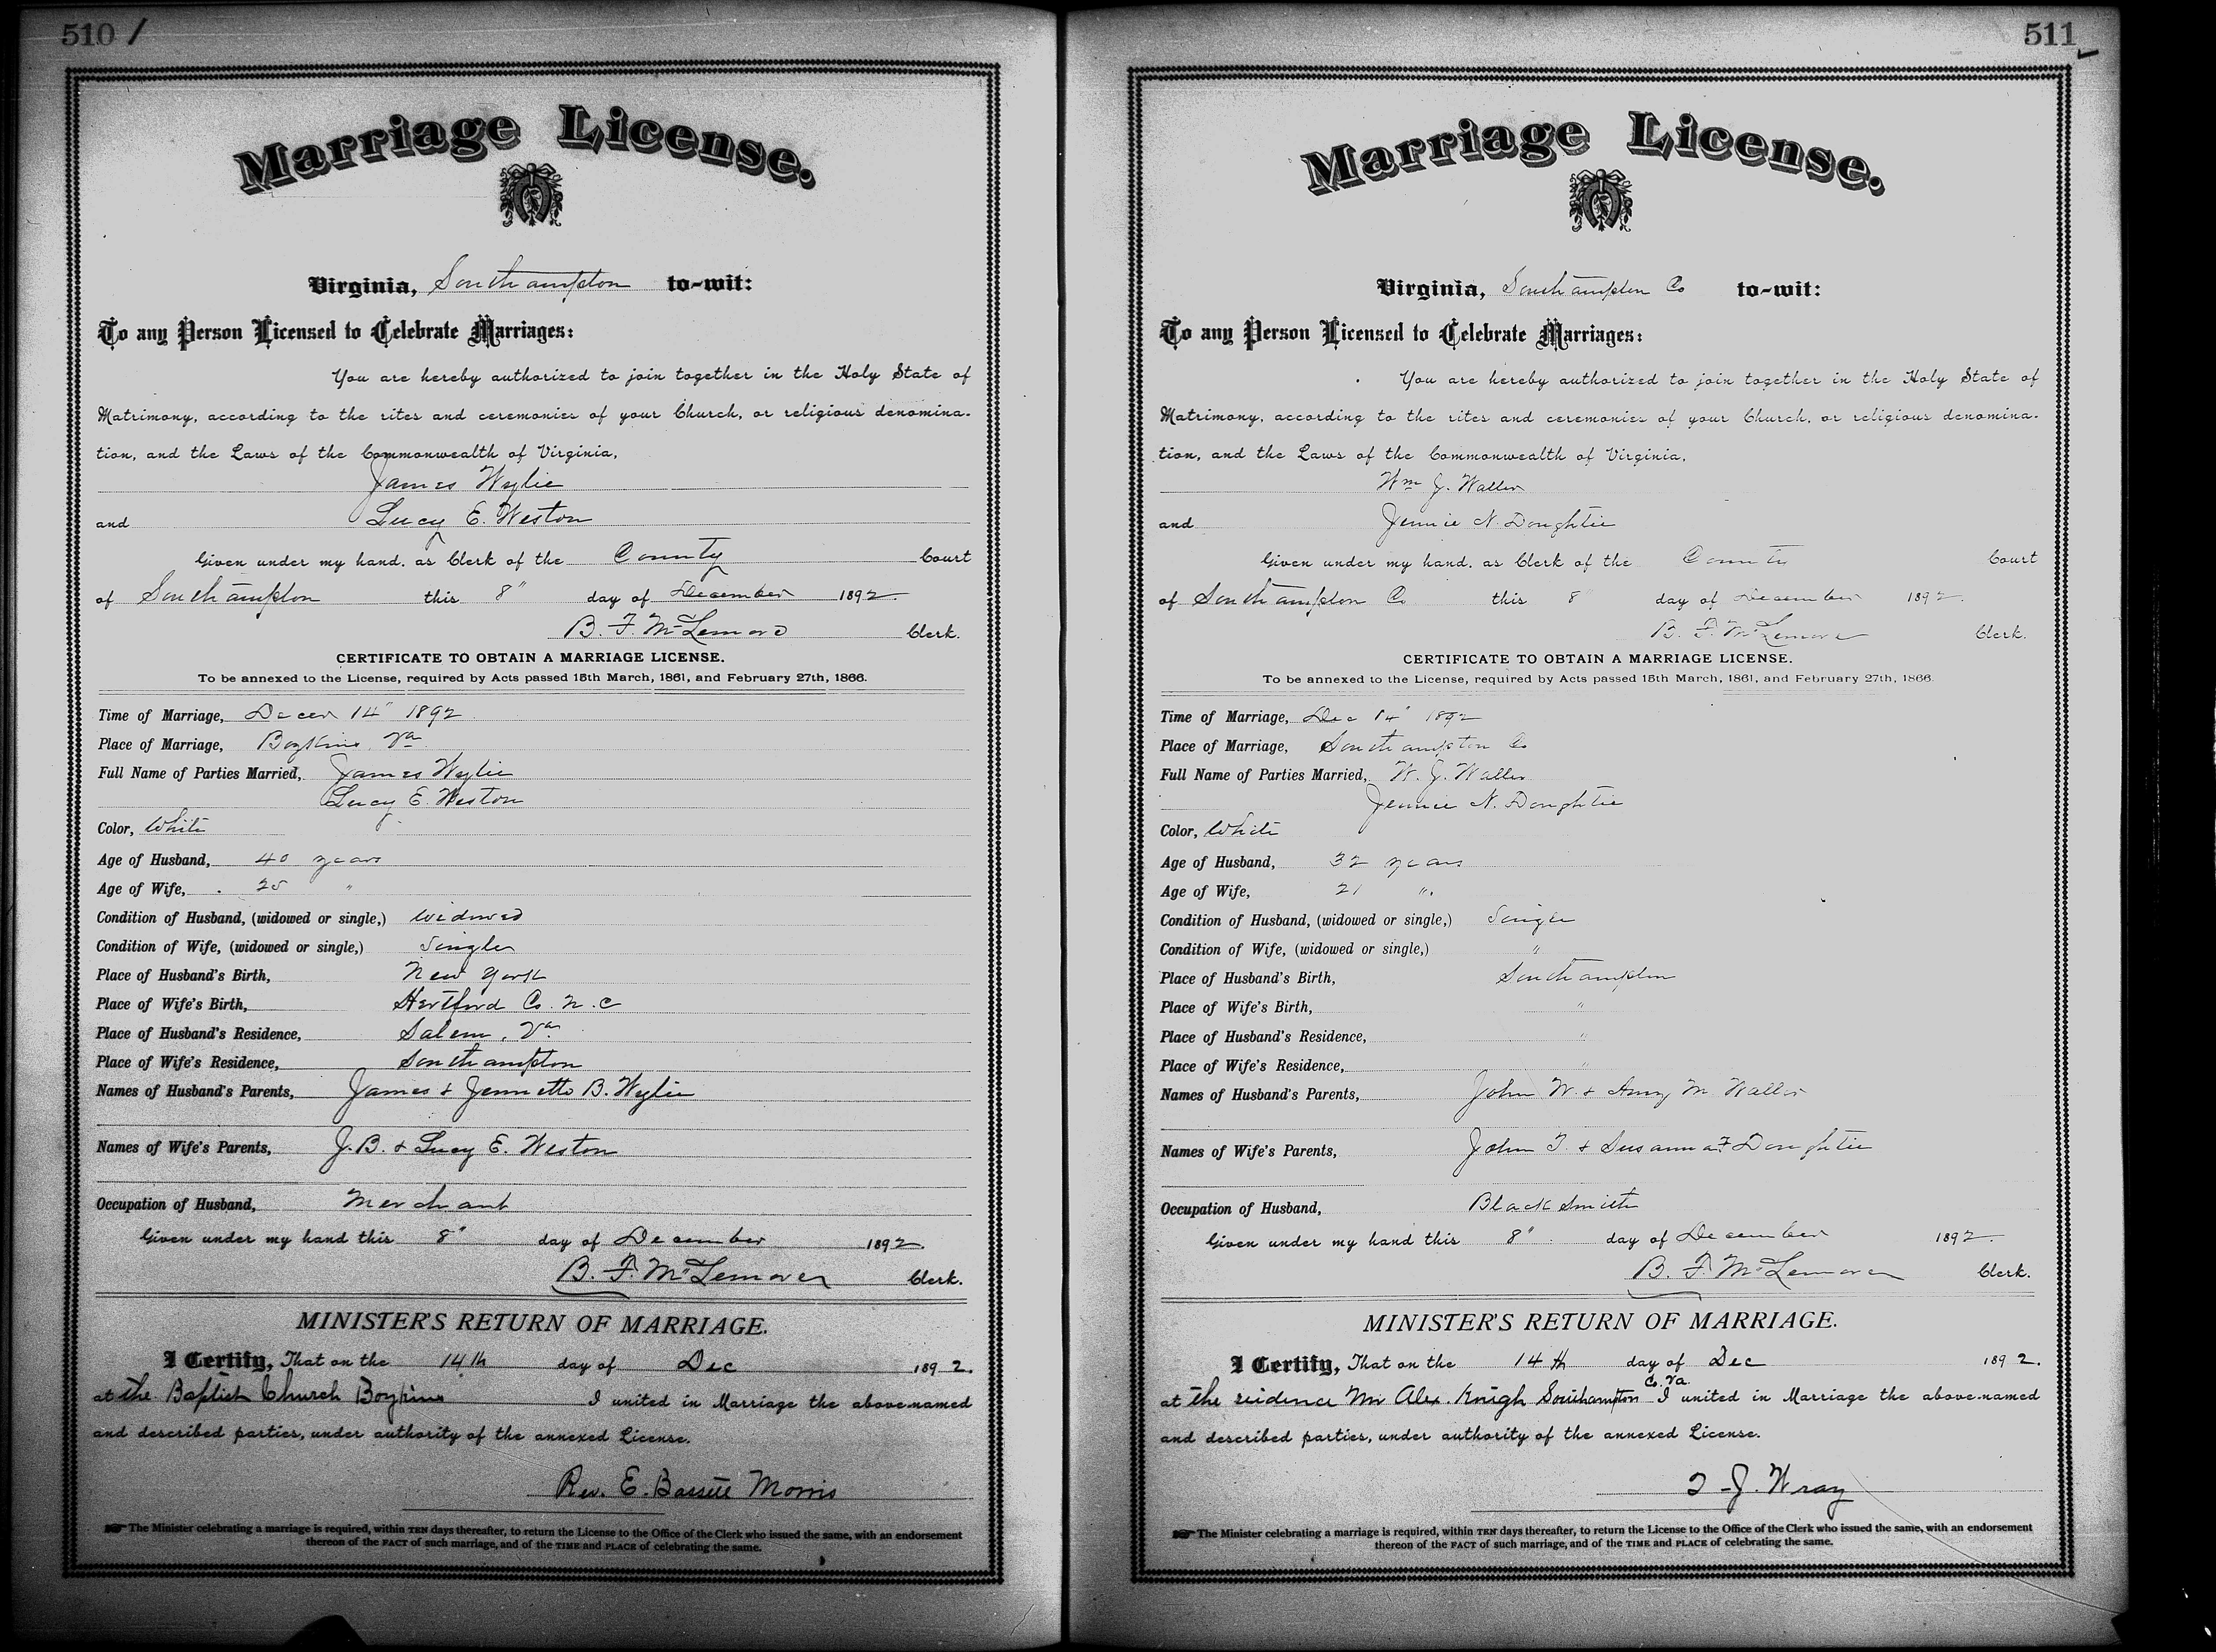 510 /
Marriage License.
Virginia, Southampton to-wit:
To any Person Licensed to Celebrate Marriages:
You are hereby authorized to join together in the Holy State of
Matrimony, according to the rites and ceremonies of your Church, or religious denomina-
tion, and the Laws of the Commonwealth of Virginia,
James Wylie
and Lucy E. Weston
Given under my hand, as Clerk of the County Court
of Southampton this 8" day of December 1892.
B. F. McLemore Clerk.
CERTIFICATE TO OBTAIN A MARRIAGE LICENSE.
To be annexed to the License, required by Acts passed 15th March, 1861, and February 27th, 1866.
Time of Marriage, Decer 14" 1892
Place of Marriage, Boykins Va
Full Name of Parties Married, James Wylie
Lucy E. Weston
Color, White
Age of Husband, 40 years
Age of Wife, 25 "
Condition of Husband, (widowed or single,) widowed
Condition of Wife, (widowed or single,) Single
Place of Husband's Birth, New York
Place of Wife's Birth, Hertford Co. N.C
Place of Husband's Residence, Salem, Va.
Place of Wife's Residence, Southampton
Names of Husband's Parents, James & Jennette B. Wylie
Names of Wife's Parents, J. B. & Lucy E. Weston
Occupation of Husband, Merchant
Given under my hand this 8" day of December 1892.
B. F. McLemore Clerk.
MINISTER'S RETURN OF MARRIAGE.
I Certify, That on the 14th day of Dec 1892.
at the Baptist Church Boykins I united in Marriage the above-named
and described parties, under authority of the annexed License.
Rev. E. Bassett Morris
The Minister celebrating a marriage is required, within TEN days thereafter, to return the License to the Office of the Clerk who issued the same, with an endorsement
thereon of the FACT of such marriage, and of the TIME and PLACE of celebrating the same.
511
Marriage License.
Virginia, Southampton Co to-wit:
To any Person Licensed to Celebrate Marriages:
You are hereby authorized to join together in the Holy State of
Matrimony, according to the rites and ceremonies of your Church, or religious denomina-
tion, and the Laws of the Commonwealth of Virginia,
Wm J. Waller
and Jennie N. Doughtie
Given under my hand, as Clerk of the County Court
of Southampton Co this 8" day of December 1892.
B. F. McLemore Clerk.
CERTIFICATE TO OBTAIN A MARRIAGE LICENSE.
To be annexed to the License, required by Acts passed 15th March, 1861, and February 27th, 1866.
Time of Marriage, Dec 14" 1892
Place of Marriage, Southampton Co
Full Name of Parties Married, W. J. Waller
Jennie N. Doughtie
Color, White
Age of Husband, 32 years
Age of Wife, 21 "
Condition of Husband, (widowed or single,) Single
Condition of Wife, (widowed or single,) "
Place of Husband's Birth, Southampton
Place of Wife's Birth, "
Place of Husband's Residence, "
Place of Wife's Residence, "
Names of Husband's Parents, John W. & Amy M. Waller
Names of Wife's Parents, John T. & Susanna F Doughtie
Occupation of Husband, Blacksmith
Given under my hand this 8" day of December 1892.
B. F. McLemore Clerk.
MINISTER'S RETURN OF MARRIAGE.
I Certify, That on the 14th day of Dec 1892.
Co. Va.
at the residence Mr Alex. Knigh Southampton I united in Marriage the above-named
and described parties, under authority of the annexed License.
J. Wray
The Minister celebrating a marriage is required, within TEN days thereafter, to return the License to the Office of the Clerk who issued the same, with an endorsement
thereon of the FACT of such marriage, and of the TIME and PLACE of celebrating the same.